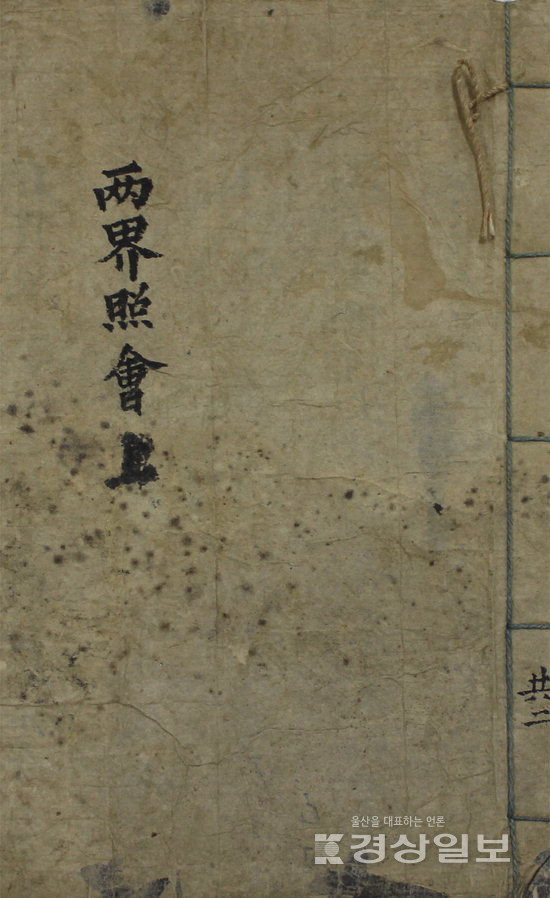 两界照會 上
共二
울산을 대표하는 언론
경상일보